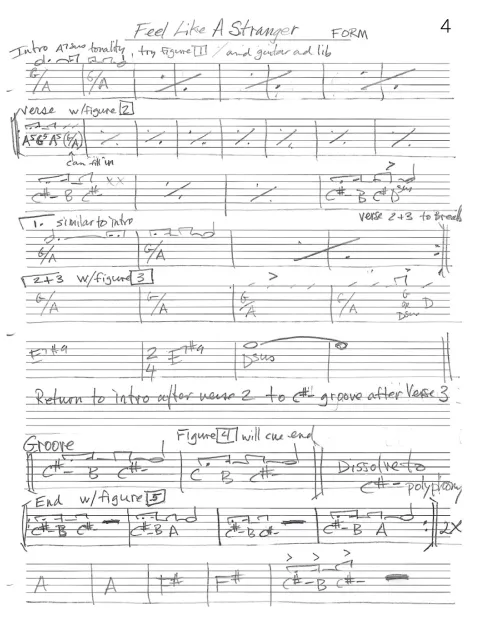 Feel Like A Stranger FORM 4
Intro A7sus tonality, try Figure 1 / and guitar ad lib
G/A G/A
Verse w/figure 2
A5 G5 A5 (G/A)
can fill in
C#- B C#- xx C#- B C#- Dsus
1. similar to intro verse 2+3 to Break
G/A G/A
2+3 w/figure 3
G/A G/A G/A G/A G D
Dsus
E7#9 2/4 E7#9 Dsus
Return to intro after verse 2 to C#- groove after Verse 3
Groove Figure 4 will cue end
C#- B C#- C· B C#- Dissolve to
C#- polyphony
End w/figure 5
C#- B C#- C#- B A C#- B C#- C#- B A 2X
A A F# F# C#- B C#-